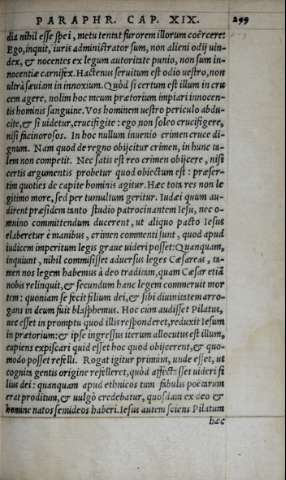 PARAPHR. CAP. XIX. 299
dia nihil esse spei, metu tentat furorem illorum coërcere:
Ego, inquit, iuris administrator sum, non alieni odij uin-
dex, & nocentes ex legum autoritate punio, non sum in-
nocentiæ carnifex. Hactenus seruitum est odio uestro, non
ultrà sæuiam in innoxium. Quòd si certum est illum in cru
cem agere, nolim hoc meum prætorium impiari innocen-
tis hominis sanguine. Vos hominem uestro periculo abdu-
cite, & si uidetur, crucifigite: ego non soleo crucifigere,
nisi facinorosos. In hoc nullum inuenio crimen cruce di-
gnum. Nam quod de regno obijcitur crimen, in hunc ta-
lem non competit. Nec satis est reo crimen obijcere, nisi
certis argumentis probetur quod obiectum est: præser-
tim quoties de capite hominis agitur. Hæc tota res non le
gitimo more, sed per tumultum geritur. Iudæi quum au-
dirent præsidem tanto studio patrocinantem Iesu, nec o-
mnino committendum ducerent, ut aliquo pacto Iesus
elaberetur è manibus, crimen commenti sunt, quod apud
iudicem imperitum legis graue uideri posset: Quanquam,
inquiunt, nihil commisisset aduersus leges Cæsareas, ta-
men nos legem habemus à deo traditam, quam Cæsar etiā
nobis relinquit, & secundum hanc legem commeruit mor
tem: quoniam se fecit filium dei, & sibi diuinitatem arro-
gans in deum fuit blasphemus. Hoc cum audisset Pilatus,
nec esset in promptu quod illis responderet, reduxit Iesum
in prætorium: & ipse ingressus iterum allocutus est illum,
cupiens expiscari quid esset hoc quod obijcerent, & quo-
modo posset refelli. Rogat igitur primùm, unde esset, ut
cognita gentis origine refelleret, quòd affectasset uideri fi
lius dei: quanquam apud ethnicos tum fabulis poëtarum
erat proditum, & uulgò credebatur, quosdam ex deo &
homine natos semideos haberi. Iesus autem sciens Pilatum
hæc